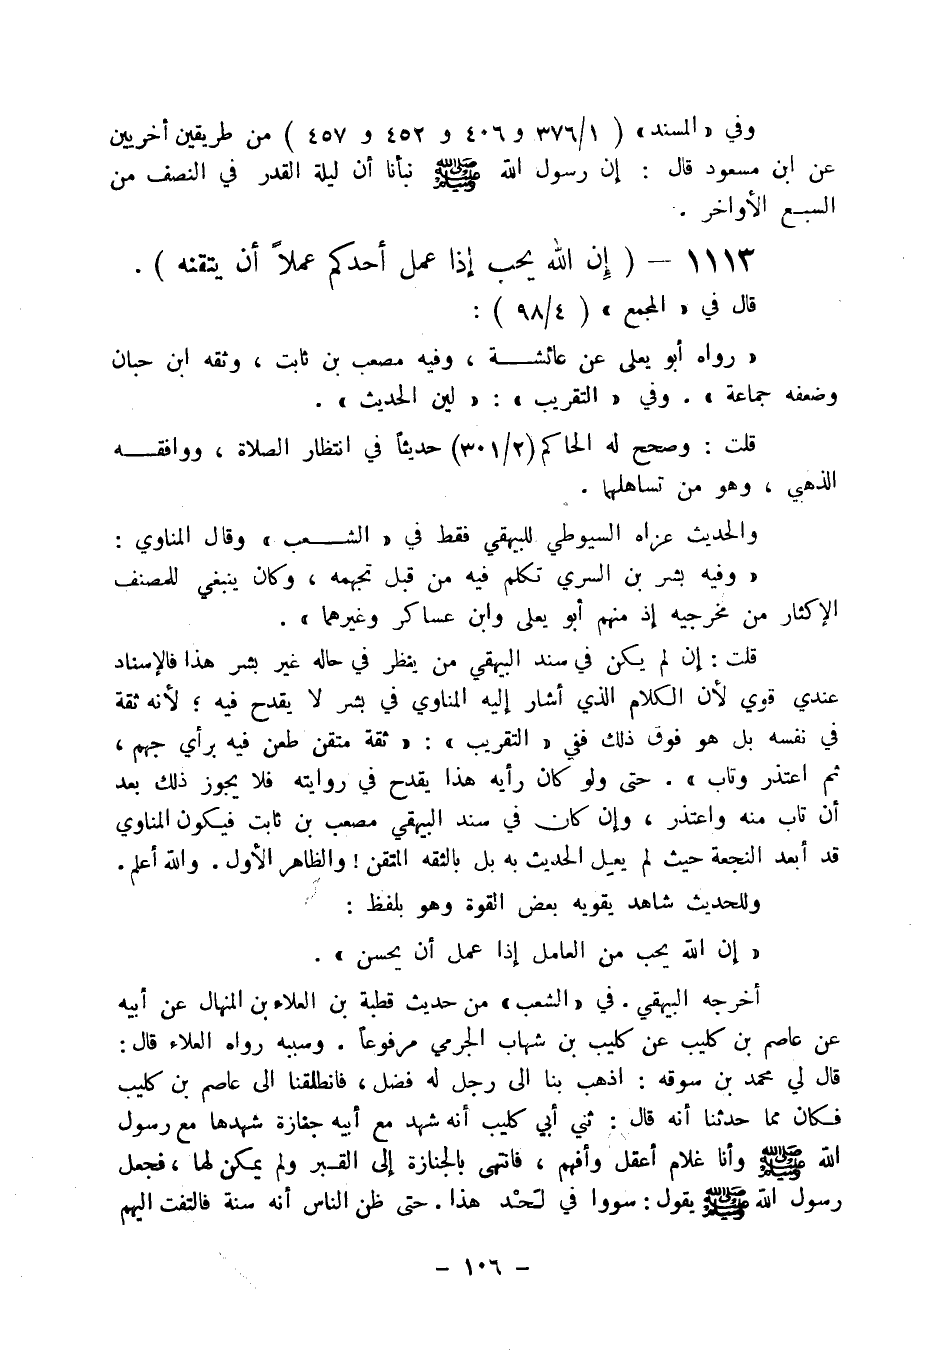 وفي « المسند » ( ٣٧٦/١ و ٤٠٦ و ٤٥٢ و ٤٥٧ ) من طريقين أخريين
عن ابن مسعود قال : إن رسول الله ﷺ نبأنا أن ليلة القدر في النصف من
السبع الأواخر .
١١١٣ – ( إِن الله يحب إذا عمل أحدكم عملاً أن يتقنه ) .
قال في « المجمع » ( ٩٨/٤ ) :
« رواه أبو يعلى عن عائشة ، وفيه مصعب بن ثابت ، وثقه ابن حبان
وضعفه جماعة » . وفي « التقريب » : « لين الحديث » .
قلت : وصحح له الحاكم (٣٠١/٢) حديثاً في انتظار الصلاة ، ووافقه
الذهبي ، وهو من تساهلها .
والحديث عزاه السيوطي للبيهقي فقط في « الشعب » وقال المناوي :
« وفيه بشر بن السري تكلم فيه من قبل تجهمه ، وكان ينبغي للمصنف
الإكثار من مخرجيه إذ منهم أبو يعلى وابن عساكر وغيرهما » .
قلت : إن لم يكن في سند البيهقي من ينظر في حاله غير بشر هذا فالإسناد
عندي قوي لأن الكلام الذي أشار إليه المناوي في بشر لا يقدح فيه ؛ لأنه ثقة
في نفسه بل هو فوق ذلك ففي « التقريب » : « ثقة متقن طعن فيه برأي جهم ،
ثم اعتذر وتاب » . حتى ولو كان رأيه هذا يقدح في روايته فلا يجوز ذلك بعد
أن تاب منه واعتذر ، وإن كان في سند البيهقي مصعب بن ثابت فيكون المناوي
قد أبعد النجعة حيث لم يعل الحديث به بل بالثقه المتقن ! والظاهر الأول . والله أعلم .
وللحديث شاهد يقويه بعض القوة وهو بلفظ :
« إن الله يحب من العامل إذا عمل أن يحسن » .
أخرجه البيهقي . في « الشعب » من حديث قطبة بن العلاء بن المنهال عن أبيه
عن عاصم بن كليب عن كليب بن شهاب الجرمي مرفوعاً . وسببه رواه العلاء قال :
قال لي محمد بن سوقه : اذهب بنا الى رجل له فضل ، فانطلقنا الى عاصم بن كليب
فكان مما حدثنا أنه قال : ثني أبي كليب أنه شهد مع أبيه جنازة شهدها مع رسول
الله ﷺ وأنا غلام أعقل وأفهم ، فانتهى بالجنازة إلى القبر ولم يمكن لها ، فجعل
رسول الله ﷺ يقول : سووا في لَحْد هذا . حتى ظن الناس أنه سنة فالتفت اليهم
– ١٠٦ –